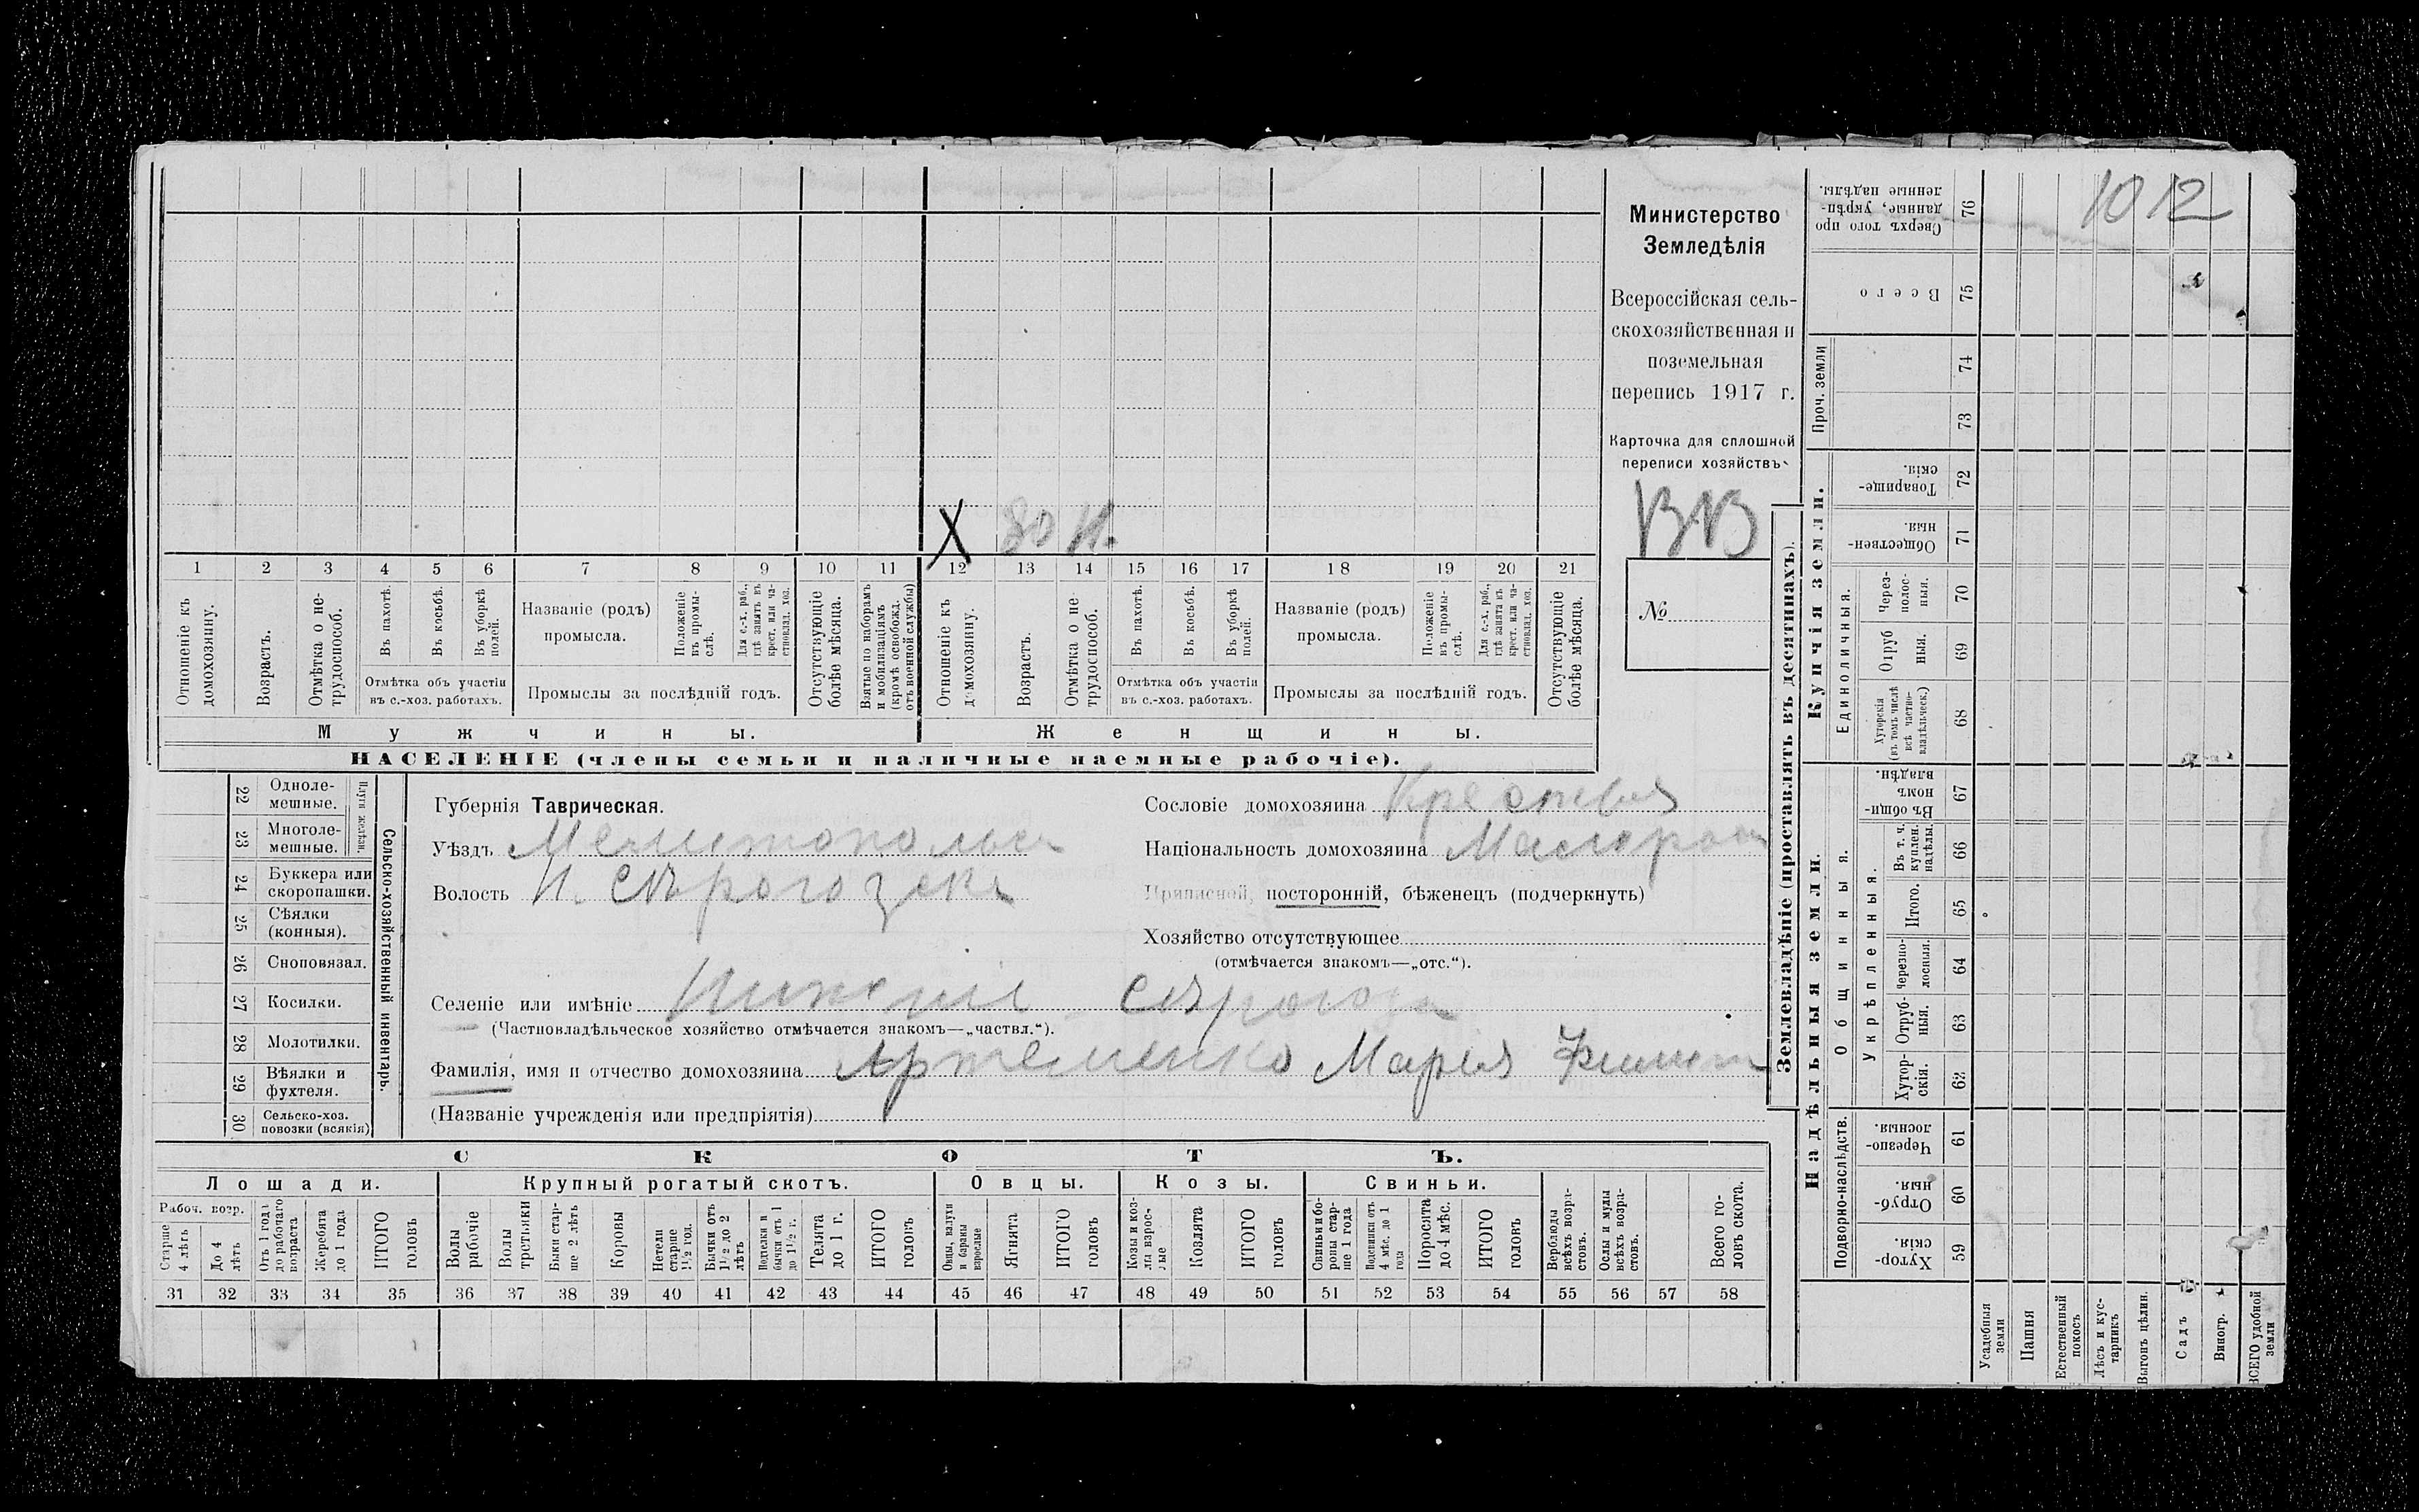 1012
Министерство
Земледѣлія
Всероссійская сель-
скохозяйственная и
поземельная
перепись 1917 г.
Карточка для сплошной
переписи хозяйствъ
ВВ
№
X 80 Н.
1 2 3 4 5 6 7 8 9 10 11 12 13 14 15 16 17 18 19 20 21
Отношеніе къ домохозяину.
Возрастъ.
Отмѣтка о не-трудоспособ.
Въ пахотѣ.
Въ косьбѣ.
Въ уборкѣ полей.
Отмѣтка объ участіи
въ с.-хоз. работахъ.
Названіе (родъ)
промысла.
Положеніе въ промы-слѣ.
Для с.-х. раб., гдѣ занятъ въ крест. или ча-стновлад. хоз.
Промыслы за послѣдній годъ.
Отсутствующіе болѣе мѣсяца.
Взятые по наборамъ и мобилизаціямъ (кромѣ освобожд. отъ военной службы)
Отношеніе къ домохозяину.
Возрастъ.
Отмѣтка о не-трудоспособ.
Въ пахотѣ.
Въ косьбѣ.
Въ уборкѣ полей.
Отмѣтка объ участіи
въ с.-хоз. работахъ.
Названіе (родъ)
промысла.
Положеніе въ промы-слѣ.
Для с.-х. раб., гдѣ занята въ крест. или ча-стновлад. хоз.
Промыслы за послѣдній годъ.
Отсутствующіе болѣе мѣсяца.
Мужчины.
Женщины.
НАСЕЛЕНІЕ (члены семьи и наличные наемные рабочіе).
Сельско-хозяйственный инвентарь.
Плуги желѣзн.
22 Одноле-мешные.
23 Многоле-мешные.
24 Буккера или скоропашки.
25 Сѣялки (конныя).
26 Сноповязал.
27 Косилки.
28 Молотилки.
29 Вѣялки и фухтеля.
30 Сельско-хоз. повозки (всякія)
Губернія Таврическая.
Уѣздъ Мелитопольск
Волость Н. Сѣрогозска
Селеніе или имѣніе Нижніе Сѣрогозы
(Частновладѣльческое хозяйство отмѣчается знакомъ—„частвл.“).
Фамилія, имя и отчество домохозяина Артеменко Марія Филип
(Названіе учрежденія или предпріятія)
Сословіе домохозяина Крестья
Національность домохозяина Малорос
Приписной, посторонній, бѣженецъ (подчеркнуть)
Хозяйство отсутствующее
(отмѣчается знакомъ—„отс.“).
СКОТЪ.
Лошади.
Крупный рогатый скотъ.
Овцы.
Козы.
Свиньи.
Рабоч. возр.
Старше 4 лѣтъ
До 4 лѣтъ
Отъ 1 года до рабочаго возраста
Жеребята до 1 года
ИТОГО головъ
Волы рабочіе
Волы третьяки
Быки стар-ше 2 лѣтъ
Коровы
Нетели старше 1½ год.
Бычки отъ 1½ до 2 лѣтъ
Подтелки и бычки отъ 1 до 1½ г.
Телята до 1 г.
ИТОГО головъ
Овцы, валухи и бараны взрослые
Ягнята
ИТОГО головъ
Козы и коз-лы взрос-лые
Козлята
ИТОГО головъ
Свиньи и бо-ровы стар-ше 1 года
Подсвинки отъ 4 мѣс. до 1 года
Поросята до 4 мѣс.
ИТОГО головъ
Верблюды всѣхъ возра-стовъ.
Ослы и мулы всѣхъ возра-стовъ.
Всего го-ловъ скота.
31 32 33 34 35 36 37 38 39 40 41 42 43 44 45 46 47 48 49 50 51 52 53 54 55 56 57 58
Землевладѣніе (проставлять въ десятинахъ).
Сверхъ того про данные, укрѣп-ленные надѣлы. 76
Всего 75
Проч. земли
74
73
Купчія земли.
Товарище-скія. 72
Обществен-ныя. 71
Единоличныя.
Через-полос-ныя. 70
Отруб ныя. 69
Хуторскія (въ томъ числѣ всѣ частно-владѣльческ.) 68
Надѣльныя земли.
Общинныя.
Въ общи-номъ владѣн. 67
Укрѣпленныя.
Въ т. ч. куплен. надѣлы. 66
Итого. 65
Черезпо-лосныя. 64
Отруб-ныя. 63
Хутор-скія. 62
Подворно-наслѣдств.
Черезпо-лосныя. 61
Отруб-ныя. 60
Хутор-скія. 59
Усадебныя земли
Пашня
Естественный покосъ
Лѣсъ и кус-тарникъ
Выгонъ цѣлин.
Садъ
Виногр.
ВСЕГО удобной земли